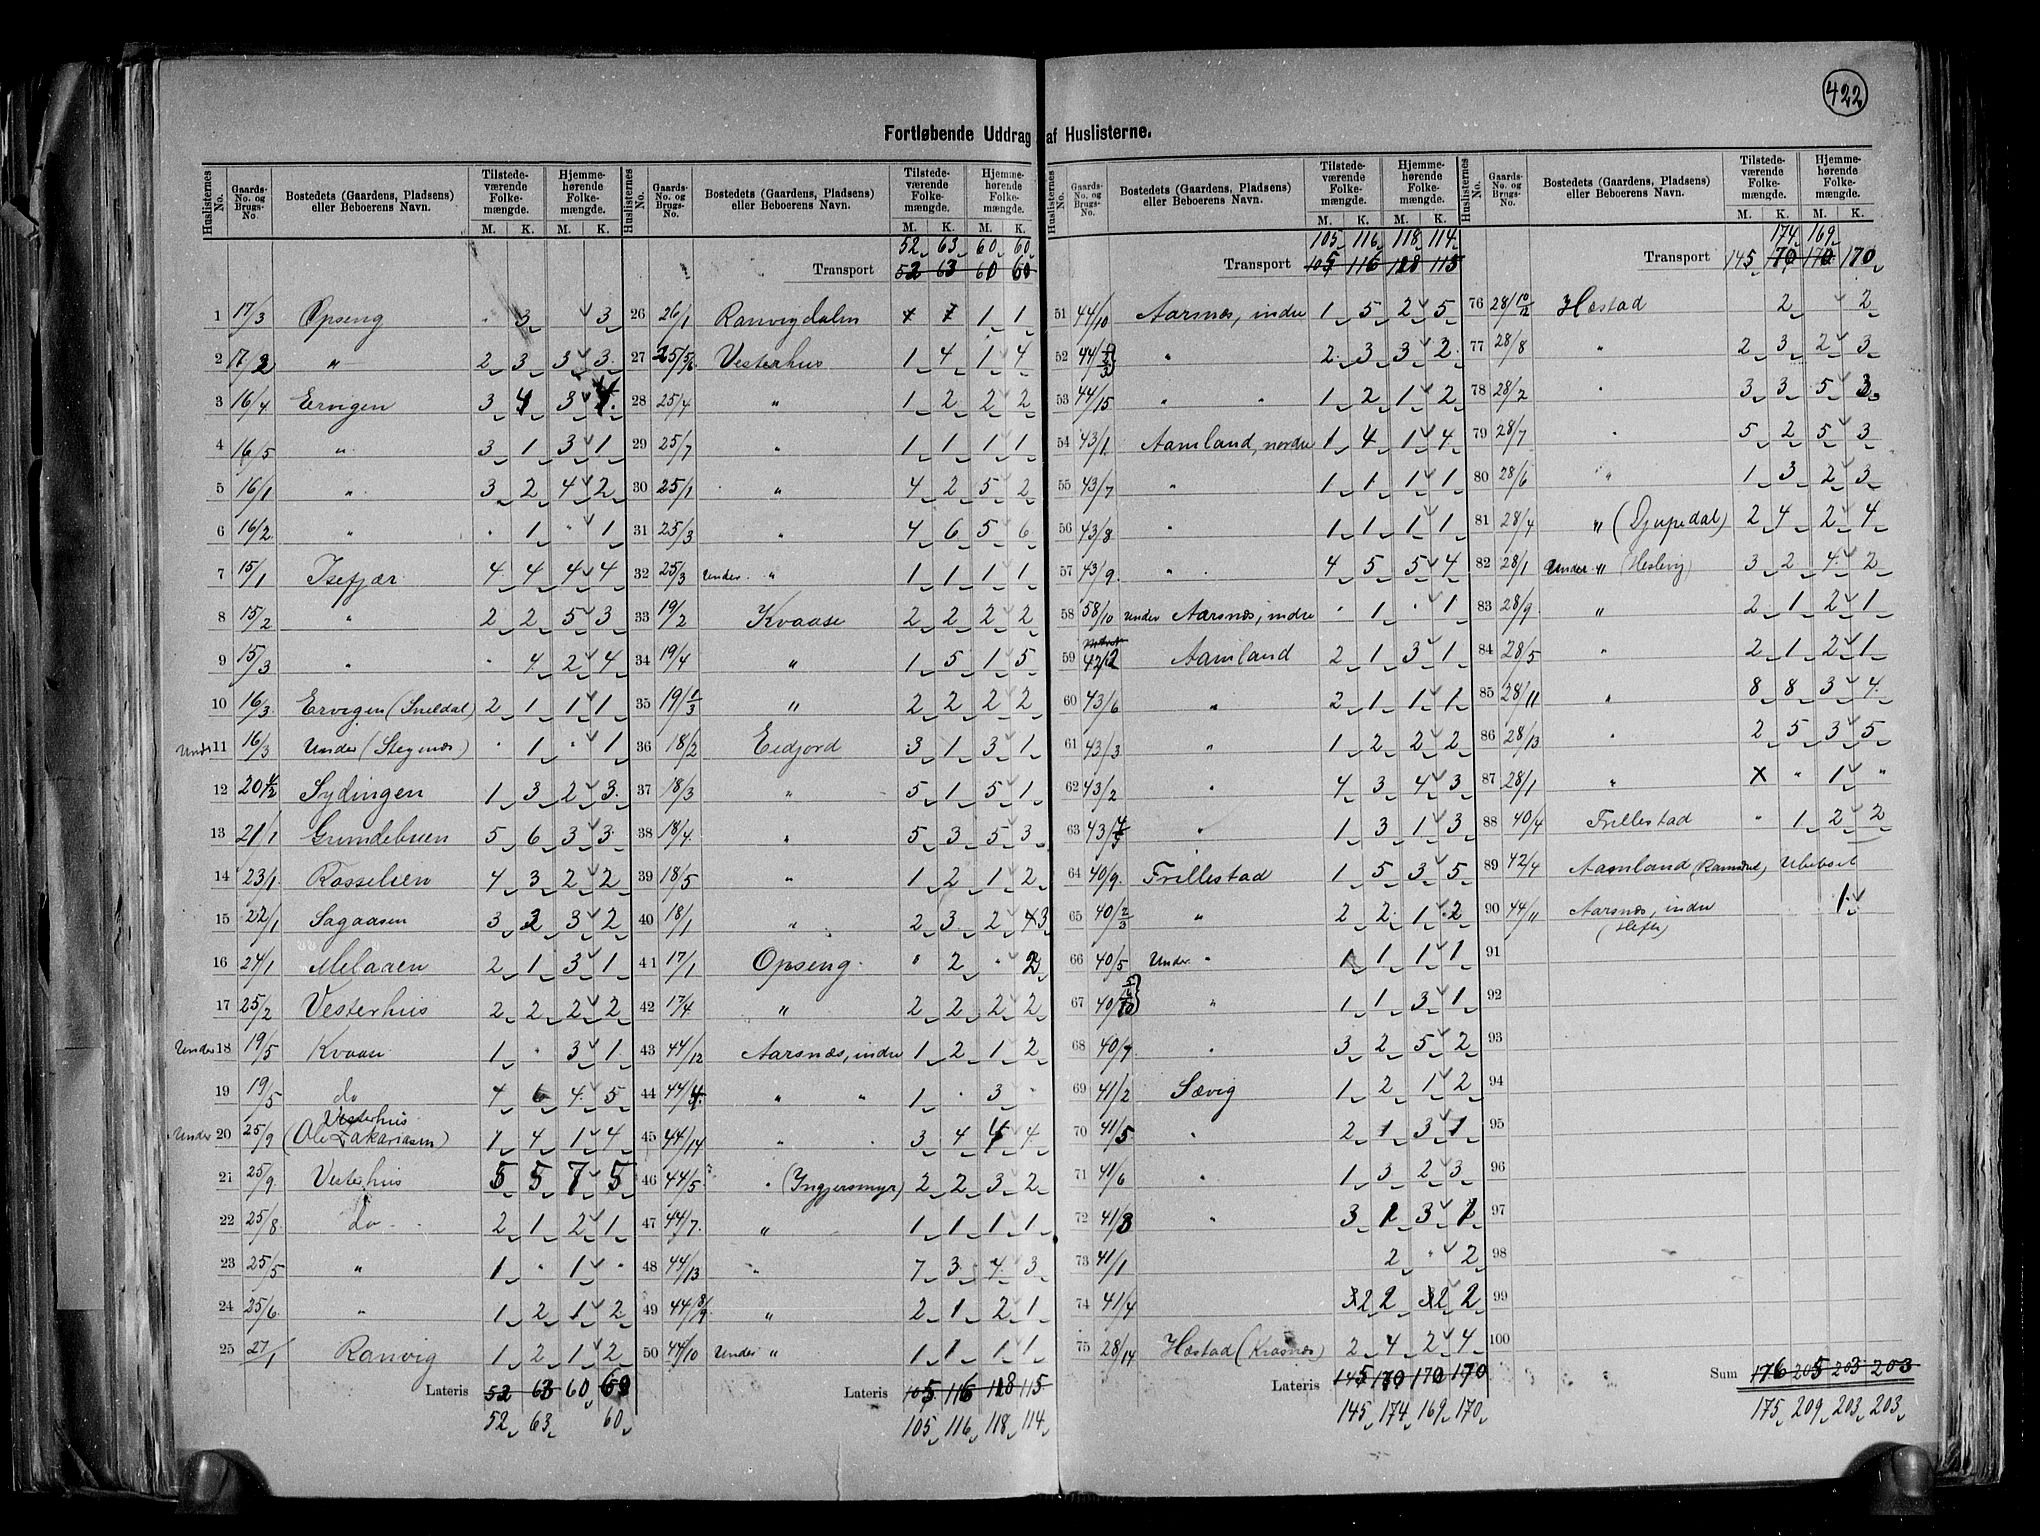 422
Fortløbende Uddrag af Huslisterne.
Huslisternes No. Gaards- No. og Brugs- No. Bostedets (Gaardens, Pladsens) eller Beboerens Navn. Tilstede- værende Folke- mængde. Hjemme- hørende Folke- mængde.
M. K. M. K.
1 17/3 Opseng " 3 3
2 17/2 " 2 3 3 3
3 16/4 Ervigen 3 4 3 4
4 16/5 " 3 1 3 1
5 16/1 " 3 2 4 2
6 16/2 " " 1 " 1
7 15/1 Isefjær 4 4 4 4
8 15/2 " 2 2 5 3
9 15/3 " " 4 2 4
10 16/3 Ervigen (Snildal) 2 1 1 1
Under 11 16/3 Under (Stegenæs) " 1 " 1
12 20 1/2 Sydingen 1 3 2 3
13 21/1 Grundebuen 5 6 3 3
14 23/1 Rosselien 4 3 2 2
15 22/1 Sagaasen 3 3 3 2
16 24/1 Melaaen 2 1 3 1
17 25/2 Vesterhus 2 2 2 2
Under 18 19/5 Kvaase 1 " 3 1
19 19/5 do 4 6 4 5
Vesterhus
Under 20 25/9 (Ole Zakariasen) 1 4 1 4
21 25/9 Vesterhus 5 5 7 5
22 25/8 do 2 1 2 1
23 25/5 " 1 " 1 "
24 25/6 " 1 2 1 2
25 27/1 Ranvig 1 2 1 2
Lateris 52 63 60 60
52 63 60
Huslisternes No. Gaards- No. og Brugs- No. Bostedets (Gaardens, Pladsens) eller Beboerens Navn. Tilstede- værende Folke- mængde. Hjemme- hørende Folke- mængde.
M. K. M. K.
52 63 60 60
Transport 52 63 60 60
26 26/1 Ranvigdalen 1 1
27 25/5/6 Vesterhus 1 4 1 4
28 25/4 " 1 2 2 2
29 25/7 " 1 1 1 1
30 25/1 " 4 2 5 2
31 25/3 " 4 6 5 6
32 25/3 Under " 1 1 1 1
33 19/2 Kvaase 2 2 2 2
34 19/4 " 1 5 1 5
35 19/1/3 " 2 2 2 2
36 18/2 Eidjord 3 1 3 1
37 18/3 " 5 1 5 1
38 18/4 " 5 3 5 3
39 18/5 " 1 2 1 2
40 18/1 " 2 3 2 3
41 17/1 Opseng " 2 " 2
42 17/4 " 2 2 2 2
43 44/12 Aarsnæs, indre 1 2 1 2
44 44/4 " " 1 " 3 "
45 44/14 " " 3 4 4 4
46 44/5 " (Ingjersmyr) 2 2 3 2
47 44/7 " 1 1 1 1
48 44/13 " 7 3 4 3
49 44/8/9 " 2 1 2 1
50 44/10 Under " 1 1 1 1
Lateris 105 116 118 115
105 116 118 114
Huslisternes No. Gaards- No. og Brugs- No. Bostedets (Gaardens, Pladsens) eller Beboerens Navn. Tilstede- værende Folke- mængde. Hjemme- hørende Folke- mængde.
M. K. M. K.
105 116 118 114
Transport 105 116 118 115
51 44/10 Aarsnæs, indre 1 5 2 5
52 44/ " 2 3 3 2
53 44/15 " " 1 2 1 2
54 43/1 Aamland, nordre 1 4 1 4
55 43/7 " 1 1 1 1
56 43/8 " 1 1 1 1
57 43/9 " 4 5 5 4
58 58/10 Under Aarsnæs, indre " 1 " 1
59 42/2 Aamland 2 1 3 1
60 43/6 " 2 1 1 1
61 43/3 " 1 2 2 2
62 43/2 " 4 3 4 3
63 43/4/5 " 1 3 1 3
64 40/9 Frillestad 1 5 3 5
65 40/2/3 " 2 2 1 2
66 40/5 Under " 1 1 1 1
67 40/ " 1 1 3 1
68 40/7 " 3 2 5 2
69 41/2 Sævig 1 2 1 2
70 41/5 " 2 1 3 1
71 41/6 " 1 3 2 3
72 41/3 " 3 1 3 1
73 41/1 2 " 2
74 41/4 2 2 2 2
75 28/14 Hæstad (Krosnæs) 2 4 2 4
Lateris 145 170 170 170
145 174 169 170
Huslisternes No. Gaards- No. og Brugs- No. Bostedets (Gaardens, Pladsens) eller Beboerens Navn. Tilstede- værende Folke- mængde. Hjemme- hørende Folke- mængde.
M. K. M. K.
174 169
Transport 145 170 170 170
76 28/10/12 Hæstad 2 2
77 28/8 " 2 3 2 3
78 28/2 " 3 3 5 3
79 28/7 " 5 2 5 3
80 28/6 " 1 3 2 3
81 28/4 " (Djupedal) 2 4 2 4
82 28/1 Under " (Heslevig) 3 2 4 2
83 28/9 " 2 1 2 1
84 28/5 " 2 1 2 1
85 28/11 " 8 8 3 4
86 28/13 " 2 5 3 5
87 28/1 " x " 1 "
88 40/4 Frillestad " 1 2 2
89 42/4 Aamland Ubeboet
90 44/11 Aarsnæs, indre 1
91
92
93
94
95
96
97
98
99
100
Sum 176 205 203 203
175 209 203 203